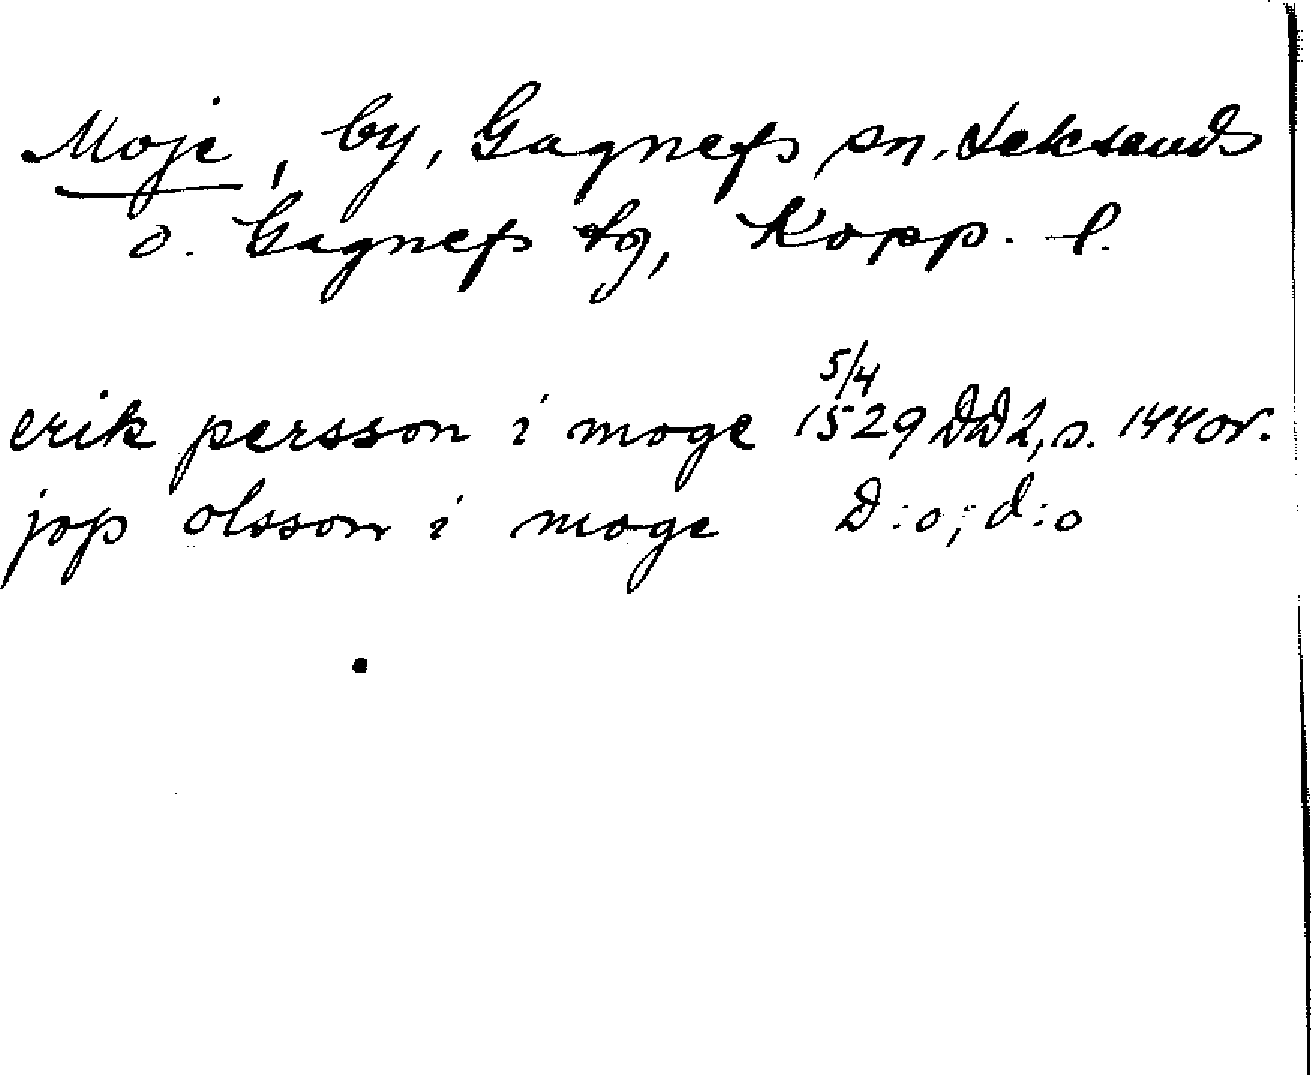 Moje, by, Gagnefs sn. Leksands
o. Gagnefs tg, Kopp. l.
erik persson i moge 5/4 1529 DD2, s. 144 or.
jop olsson i moge D:o; d:o